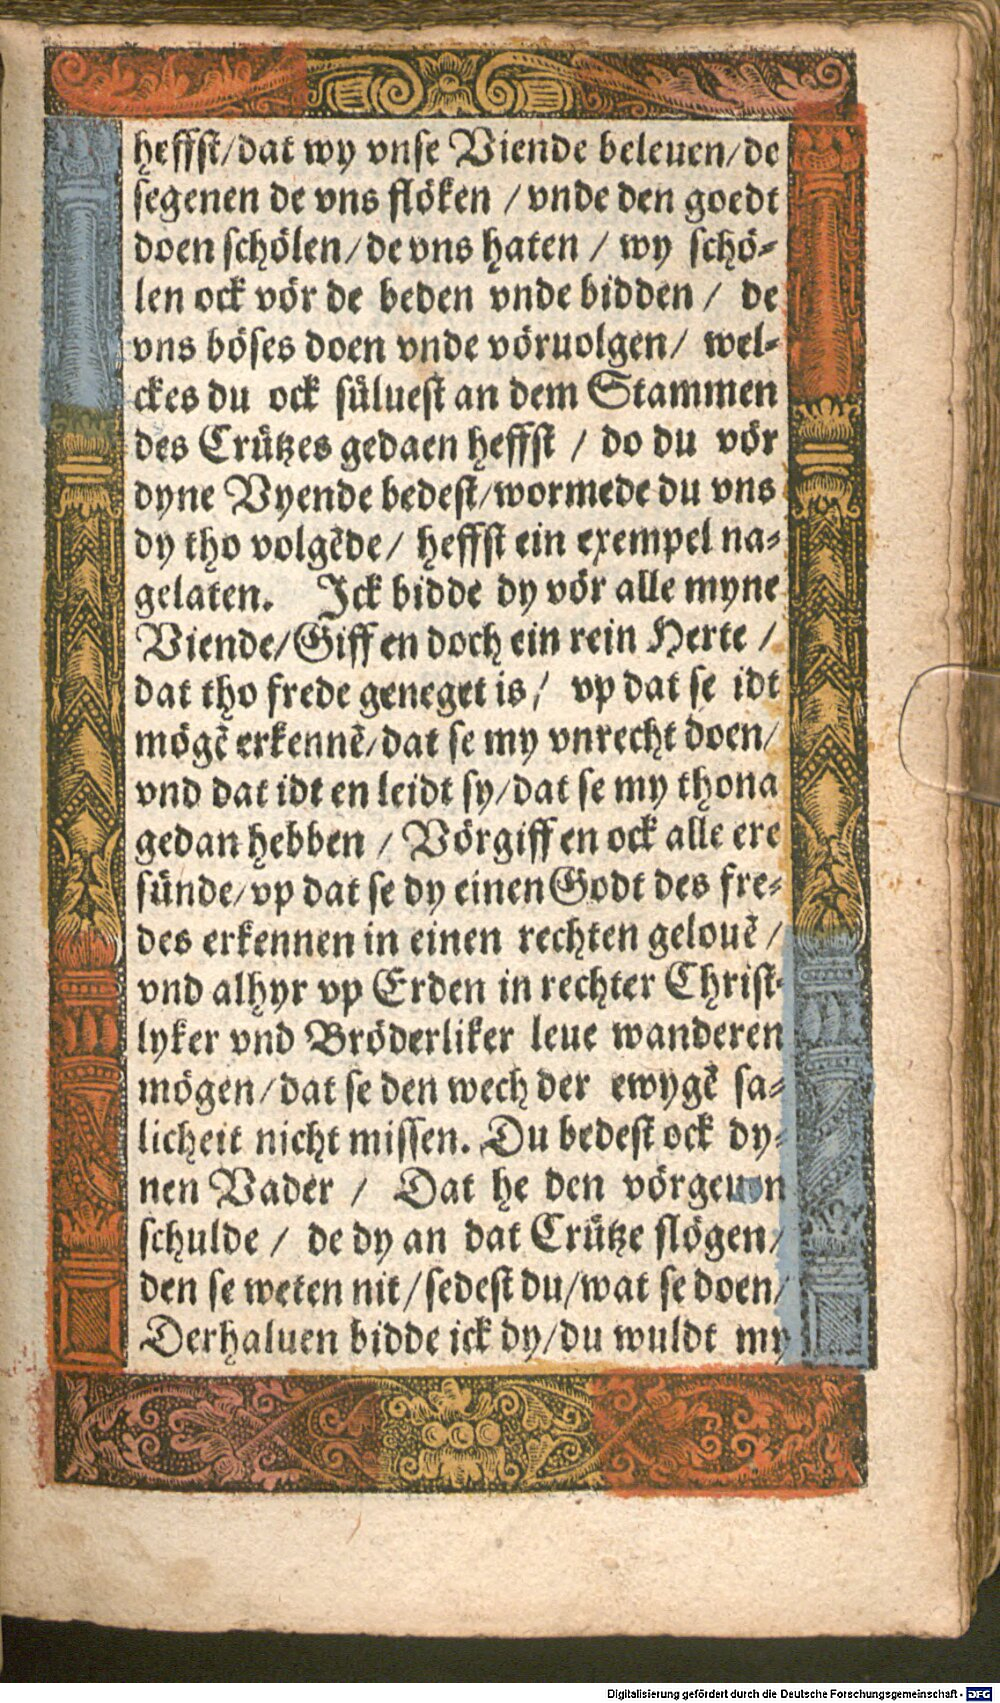 heffst/dat wy vnse Viende beleuen/de
segenen de vns flöken / vnde den goedt
doen schölen/de vns haten / wy schö-
len ock vör de beden vnde bidden / de
vns böses doen vnde vöruolgen/ wel-
ckes du ock süluest an dem Stammen
des Crützes gedaen heffst / do du vör
dyne Vyende bedest/wormede du vns
dy tho volgẽde/ heffst ein exempel na-
gelaten. Ick bidde dy vör alle myne
Viende/Giff en doch ein rein Herte /
dat tho frede geneget is/ vp dat se idt
mögẽ erkennẽ/dat se my vnrecht doen/
vnd dat idt en leidt sy/dat se my thona
gedan hebben / Vörgiff en ock alle ere
sünde/vp dat se dy einen Godt des fre-
des erkennen in einen rechten gelouẽ /
vnd alhyr vp Erden in rechter Christ-
lyker vnd Bröderliker leue wanderen
mögen/dat se den wech der ewygẽ sa-
licheit nicht missen. Du bedest ock dy-
nen Vader / Dat he den vörgeuen
schulde / de dy an dat Crütze slögen/
den se weten nit/sedest du/wat se doen/
Derhaluen bidde ick dy/du wuldt my
Digitalisierung gefördert durch die Deutsche Forschungsgemeinschaft - DFG